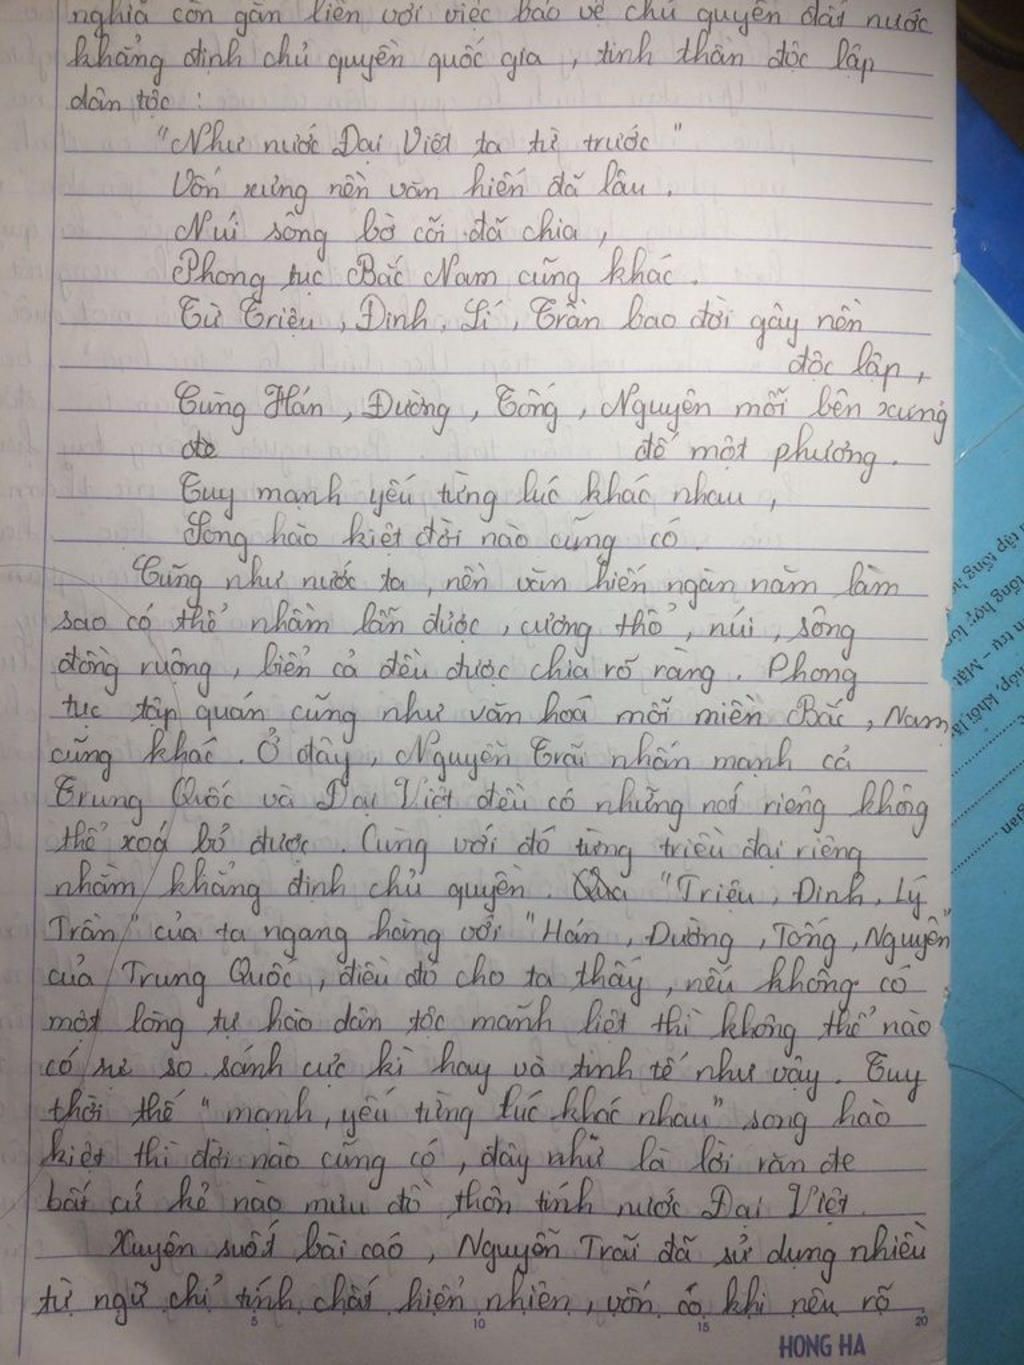 nghĩa còn gắn liền với việc bảo vệ chủ quyền đất nước
khẳng định chủ quyền quốc gia, tinh thần độc lập
dân tộc :
"Như nước Đại Việt ta từ trước"
Vốn xưng nền văn hiến đã lâu.
Núi sông bờ cõi đã chia,
Phong tục Bắc Nam cũng khác.
Từ Triệu, Đinh, Lí, Trần bao đời gây nền
độc lập,
Cùng Hán, Đường, Tống, Nguyên mỗi bên xưng
đế một phương.
Tuy mạnh yếu từng lúc khác nhau,
Song hào kiệt đời nào cũng có.
Cũng như nước ta, nền văn hiến ngàn năm làm
sao có thể nhầm lẫn được, cương thổ, núi, sông
đồng ruộng, biển cả đều được chia rõ ràng. Phong
tục tập quán cũng như văn hoá mỗi miền Bắc, Nam
cũng khác. Ở đây, Nguyễn Trãi nhấn mạnh cả
Trung Quốc và Đại Việt đều có những nét riêng không
thể xoá bỏ được. Cùng với đó từng triều đại riêng
nhằm khẳng định chủ quyền. Qua "Triệu, Đinh, Lý
Trần" của ta ngang hàng với "Hán, Đường, Tống, Nguyên"
của Trung Quốc, điều đó cho ta thấy, nếu không có
một lòng tự hào dân tộc mãnh liệt thì không thể nào
có sự so sánh cực kì hay và tinh tế như vậy. Tuy
thời thế "mạnh, yếu từng lúc khác nhau" song hào
kiệt thì đời nào cũng có, đây như là lời răn đe
bất cứ kẻ nào mưu đồ thôn tính nước Đại Việt.
Xuyên suốt bài cáo, Nguyễn Trãi đã sử dụng nhiều
từ ngữ chỉ tính chất hiển nhiên, vốn có khi nêu rõ
5 10 15 20
HONG HA